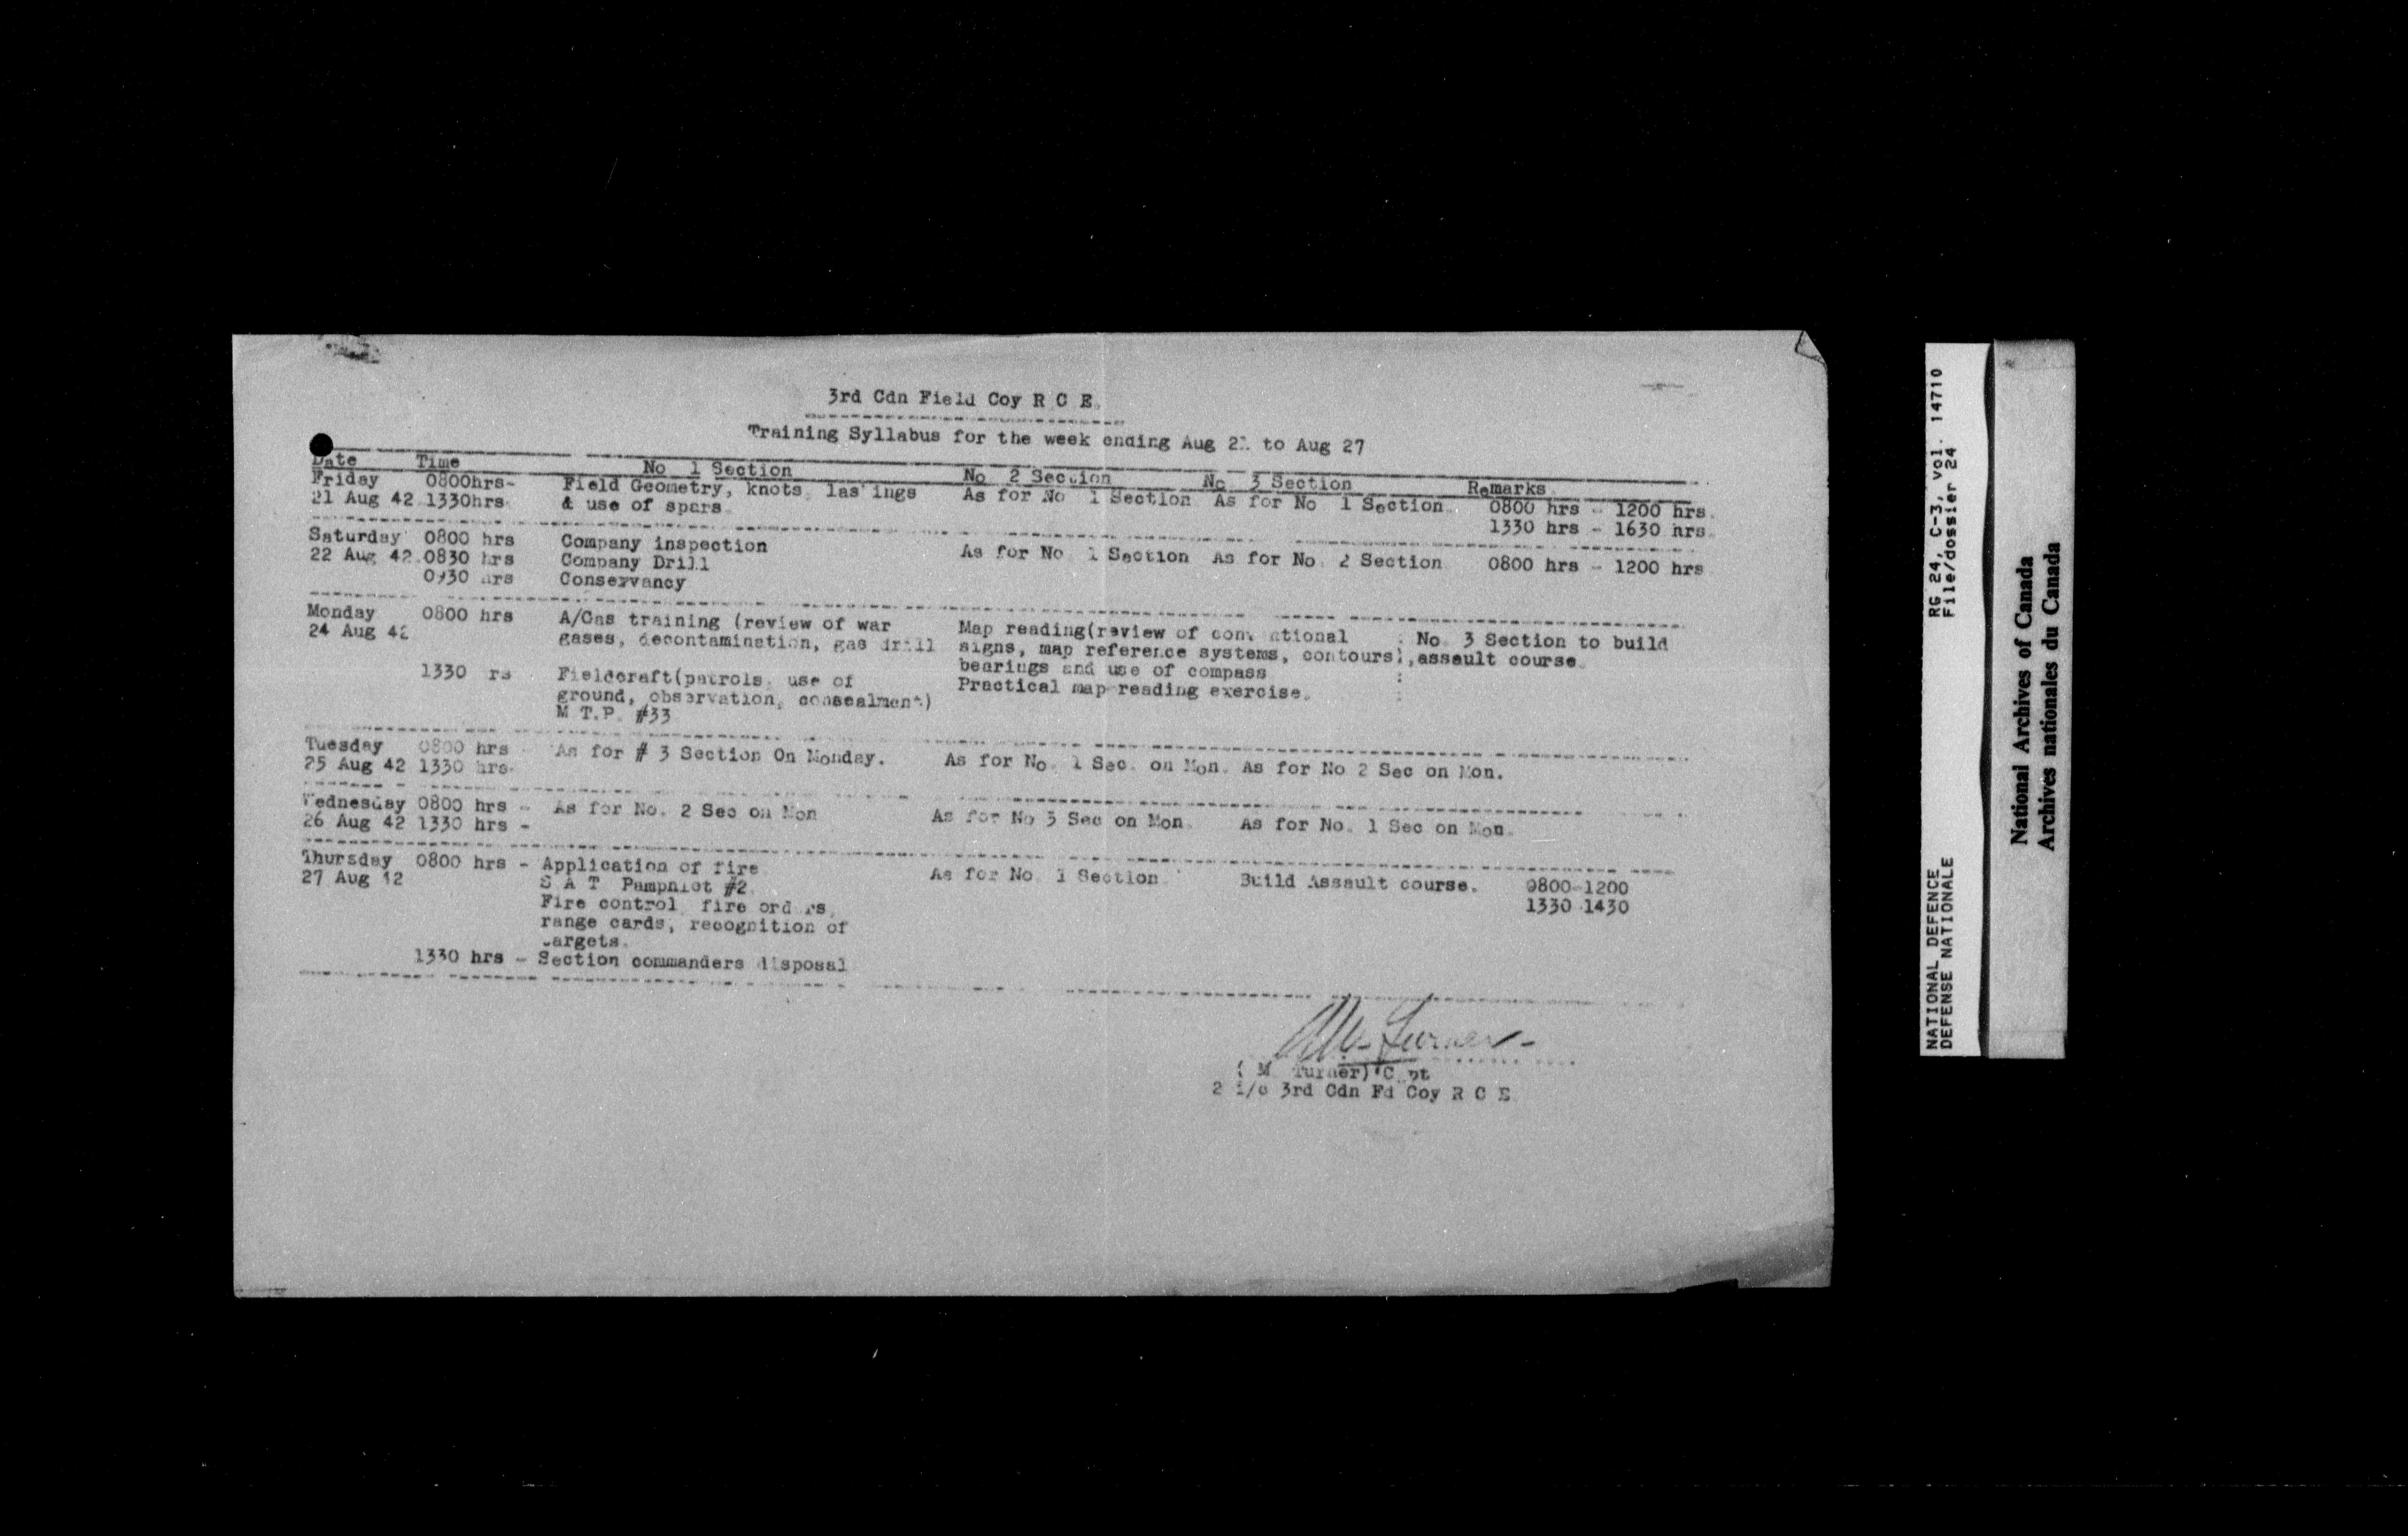 3rd Cdn Field Coy R C E.
Training Syllabus for the week ending Aug 21 to Aug 27
Date Time No 1 Section No 2 Section No 3 Section Remarks
Friday 0800hrs- Field Geometry, knots, lashings As for No 1 Section As for No 1 Section. 0800 hrs - 1200 hrs.
21 Aug 42 1330hrs & use of spars. 1330 hrs - 1630 hrs.
Saturday 0800 hrs Company inspection As for No 1 Section As for No. 2 Section 0800 hrs - 1200 hrs
22 Aug 42 0830 hrs Company Drill
0930 hrs Conservancy
Monday 0800 hrs A/Gas training (review of war Map reading(review of conventional : No. 3 Section to build
24 Aug 42 gases, decontamination, gas drill signs, map reference systems, contours), assault course.
bearings and use of compass :
1330 hrs Fieldcraft(patrols, use of Practical map reading exercise. :
ground, observation, consealment)
M T.P. #33
Tuesday 0800 hrs - As for # 3 Section On Monday. As for No. 1 Sec. on Mon. As for No 2 Sec on Mon.
25 Aug 42 1330 hrs-
Wednesday 0800 hrs - As for No. 2 Sec on Mon As for No 3 Sec on Mon. As for No. 1 Sec on Mon.
26 Aug 42 1330 hrs -
Thursday 0800 hrs - Application of fire As for No. 1 Section. Build Assault course. 0800-1200
27 Aug 42 S A T Pamphlet #2. 1330-1430
Fire control, fire orders,
range cards, recognition of
targets.
1330 hrs - Section commanders disposal
( M Turner) Capt
2 i/c 3rd Cdn Fd Coy R C E
RG 24, C-3, vol. 14710
File/dossier 24
NATIONAL DEFENCE
DEFENSE NATIONALE
National Archives of Canada
Archives nationales du Canada